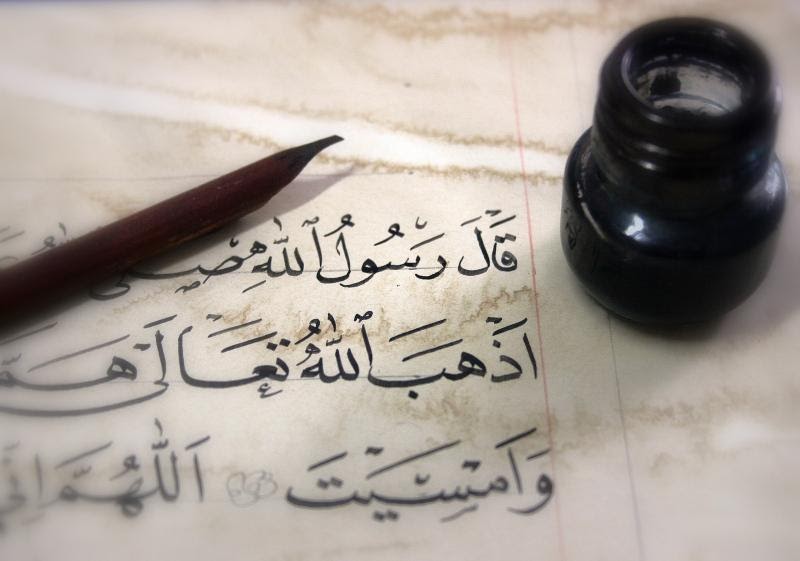 قَالَ رَسُولُ ٱللّٰهِ
اَذْهَبَ ٱللّٰهُ تَعَالَى هَمَّ
وَاَمْسَيْتَ اَللّٰهُمَّ اِنِّي